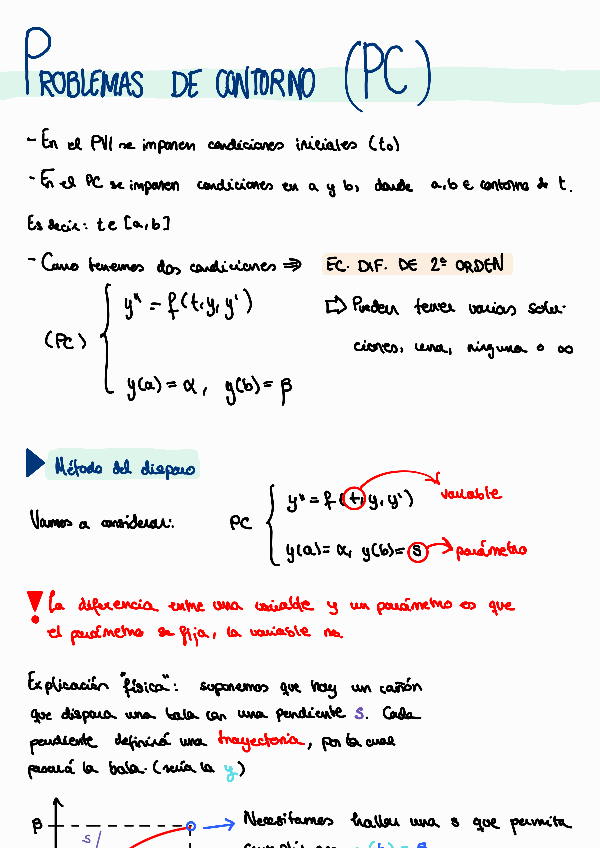 PROBLEMAS DE CONTORNO (PC)
- En el PVI se imponen condiciones iniciales (t₀)
- En el PC se imponen condiciones en a y b, donde a, b ∈ contorno de t.
Es decir: t ∈ [a, b]
- Como tenemos dos condiciones ⇒ EC. DIF. DE 2º ORDEN
y'' = f(t, y, y') ⇨ Pueden tener varias solu-
(PC) ciones, una, ninguna o ∞
y(a) = α, y(b) = β
Método del disparo
y'' = f(t, y, y') variable
Vamos a considerar: PC
y(a) = α, y(b) = s → parámetro
! La diferencia entre una variable y un parámetro es que
el parámetro se fija, la variable no.
Explicación "física": suponemos que hay un cañón
que dispara una bala con una pendiente s. Cada
pendiente definirá una trayectoria, por la cual
pasará la bala. (sería la y)
β s → Necesitamos hallar una s que permita